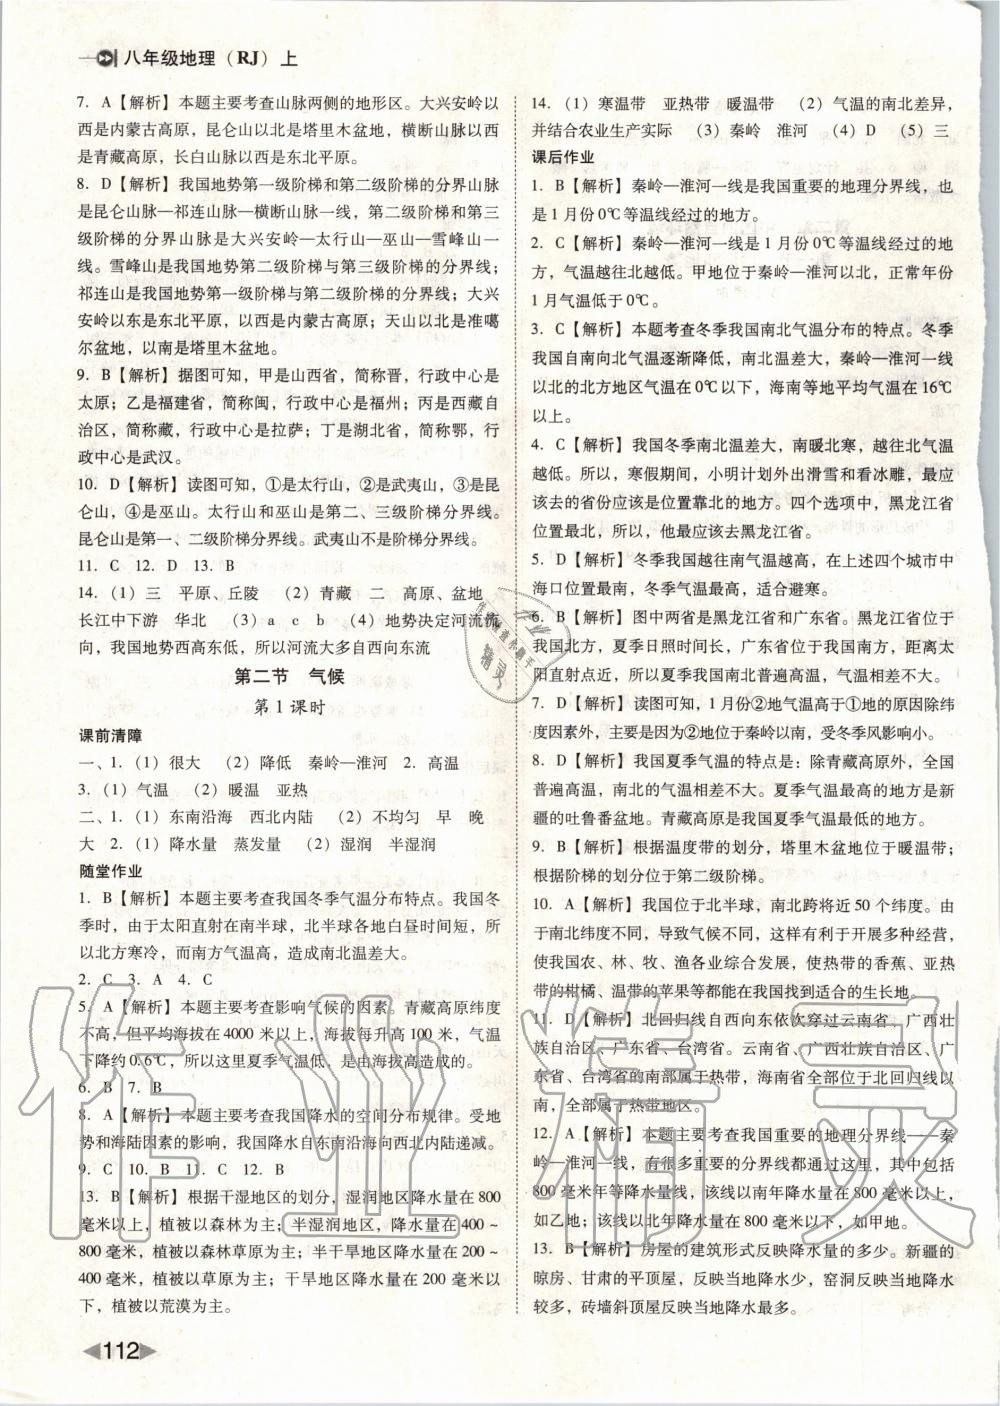 八年级地理（RJ）上
7. A【解析】本题主要考查山脉两侧的地形区。大兴安岭以
西是内蒙古高原，昆仑山以北是塔里木盆地，横断山脉以西
是青藏高原，长白山脉以西是东北平原。
8. D【解析】我国地势第一级阶梯和第二级阶梯的分界山脉
是昆仑山脉—祁连山脉—横断山脉一线，第二级阶梯和第三
级阶梯的分界山脉是大兴安岭—太行山—巫山—雪峰山一
线。雪峰山是我国地势第二级阶梯与第三级阶梯的分界线；
祁连山是我国地势第一级阶梯与第二级阶梯的分界线；大兴
安岭以东是东北平原，以西是内蒙古高原；天山以北是准噶
尔盆地，以南是塔里木盆地。
9. B【解析】据图可知，甲是山西省，简称晋，行政中心是
太原；乙是福建省，简称闽，行政中心是福州；丙是西藏自
治区，简称藏，行政中心是拉萨；丁是湖北省，简称鄂，行
政中心是武汉。
10. D【解析】读图可知，①是太行山，②是武夷山，③是昆
仑山，④是巫山。太行山和巫山是第二、三级阶梯分界线。
昆仑山是第一、二级阶梯分界线。武夷山不是阶梯分界线。
11. C 12. D 13. B
14. （1）三 平原、丘陵 （2）青藏 二 高原、盆地
长江中下游 华北 （3）a c b （4）地势决定河流流
向，我国地势西高东低，所以河流大多自西向东流
第二节 气候
第 1 课时
课前清障
一、1. （1）很大 （2）降低 秦岭—淮河 2. 高温
3. （1）气温 （2）暖温 亚热
二、1. （1）东南沿海 西北内陆 （2）不均匀 早 晚
大 2. （1）降水量 蒸发量 （2）湿润 半湿润
随堂作业
1. B【解析】本题主要考查我国冬季气温分布特点。我国冬
季时，由于太阳直射在南半球，北半球各地白昼时间短，所
以北方寒冷，而南方气温高，造成南北温差大。
2. C 3. A 4. C
5. A【解析】本题主要考查影响气候的因素。青藏高原纬度
不高，但平均海拔在 4000 米以上，海拔每升高 100 米，气温
下降约 0.6℃，所以这里夏季气温低，是由海拔高造成的。
6. B 7. B
8. A【解析】本题主要考查我国降水的空间分布规律。受地
势和海陆因素的影响，我国降水自东南沿海向西北内陆递减。
9. C 10. B 11. C 12. B
13. B【解析】根据干湿地区的划分，湿润地区降水量在 800
毫米以上，植被以森林为主；半湿润地区，降水量在 400～
800 毫米，植被以森林草原为主；半干旱地区降水量在 200～
400 毫米，植被以草原为主；干旱地区降水量在 200 毫米以
下，植被以荒漠为主。
14. （1）寒温带 亚热带 暖温带 （2）气温的南北差异，
并结合农业生产实际 （3）秦岭 淮河 （4）D （5）三
课后作业
1. B【解析】秦岭—淮河一线是我国重要的地理分界线，也
是 1 月份 0℃等温线经过的地方。
2. C【解析】秦岭—淮河一线是 1 月份 0℃等温线经过的地
方，气温越往北越低。甲地位于秦岭—淮河以北，正常年份
1 月气温低于 0℃。
3. C【解析】本题考查冬季我国南北气温分布的特点。冬季
我国自南向北气温逐渐降低，南北温差大，秦岭—淮河一线
以北的北方地区气温在 0℃以下，海南等地平均气温在 16℃
以上。
4. C【解析】我国冬季南北温差大，南暖北寒，越往北气温
越低。所以，寒假期间，小明计划外出滑雪和看冰雕，最应
该去的省份应该是位置靠北的地方。四个选项中，黑龙江省
位置最北，所以，他最应该去黑龙江省。
5. D【解析】冬季我国越往南气温越高，在上述四个城市中
海口位置最南，冬季气温最高，适合避寒。
6. B【解析】图中两省是黑龙江省和广东省。黑龙江省位于
我国北方，夏季日照时间长；广东省位于我国南方，距离太
阳直射点近，所以夏季我国南北普遍高温，气温相差不大。
7. D【解析】读图可知，1 月份②地气温高于①地的原因除纬
度因素外，主要是因为②地位于秦岭以南，受冬季风影响小。
8. D【解析】我国夏季气温的特点是：除青藏高原外，全国
普遍高温，南北的气温相差不大。夏季气温最高的地方是新
疆的吐鲁番盆地。青藏高原是我国夏季气温最低的地方。
9. B【解析】根据温度带的划分，塔里木盆地位于暖温带；
根据阶梯的划分位于第二级阶梯。
10. A【解析】我国位于北半球，南北跨将近 50 个纬度。由
于南北纬度不同，导致气候不同，这样有利于开展多种经营，
使我国农、林、牧、渔各业综合发展，使热带的香蕉、亚热
带的柑橘、温带的苹果等都能在我国找到适合的生长地。
11. D【解析】北回归线自西向东依次穿过云南省、广西壮
族自治区、广东省、台湾省。云南省、广西壮族自治区、广
东省、台湾省的南部属于热带，海南省全部在北回归线以
南，全部属于热带地区。
12. A【解析】本题主要考查我国重要的地理分界线——秦
岭—淮河一线，有很多重要的分界线都通过这里，其中包括
800 毫米年等降水量线，该线以南年降水量在 800 毫米以上，
如乙地；该线以北年降水量在 800 毫米以下，如甲地。
13. B【解析】房屋的建筑形式反映降水量的多少。新疆的
晾房、甘肃的平顶屋，反映当地降水少，窑洞反映当地降水
较多，砖墙斜顶屋反映当地降水最多。
112
作业精灵